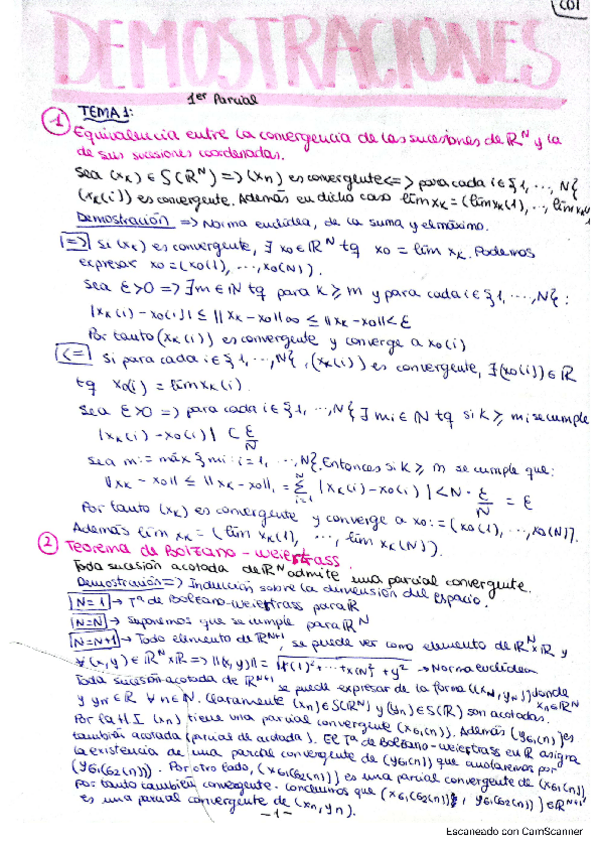 CDI
DEMOSTRACIONES
1er Parcial
TEMA 1:
1 Equivalencia entre la convergencia de las sucesiones de ℝᴺ y la
de sus sucesiones coordenadas.
Sea (xₖ) ∈ S(ℝᴺ) => (xₙ) es convergente <=> para cada i ∈ {1, ..., N}
(xₖ(i)) es convergente. Además en dicho caso lím xₖ = (lím xₖ(1), ..., lím xₖ(N))
Demostración => Norma euclídea, de la suma y el máximo.
|=>| Si (xₖ) es convergente, ∃ x₀ ∈ ℝᴺ tq x₀ = lím xₖ. Podemos
expresar x₀ = (x₀(1), ..., x₀(N)).
Sea ε>0 => ∃ m ∈ ℕ tq para k ≥ m y para cada i ∈ {1, ..., N}:
|xₖ(i) - x₀(i)| ≤ ||xₖ - x₀||∞ ≤ ||xₖ - x₀|| < ε
Por tanto (xₖ(i)) es convergente y converge a x₀(i)
|<=| Si para cada i ∈ {1, ..., N}, (xₖ(i)) es convergente, ∃ (x₀(i)) ∈ ℝ
tq x₀(i) = lím xₖ(i).
Sea ε>0 => para cada i ∈ {1, ..., N} ∃ mi ∈ ℕ tq si k ≥ mi se cumple
|xₖ(i) - x₀(i)| < ε/N
Sea m := máx {mi : i=1, ..., N}. Entonces si k ≥ m se cumple que:
||xₖ - x₀|| ≤ ||xₖ - x₀||₁ = Σᵢ₌₁ᴺ |xₖ(i) - x₀(i)| < N · ε/N = ε
Por tanto (xₖ) es convergente y converge a x₀ := (x₀(1), ..., x₀(N)).
Además lím xₖ = (lím xₖ(1), ..., lím xₖ(N)).
2 Teorema de Bolzano-Weierstrass.
Toda sucesión acotada de ℝᴺ admite una parcial convergente.
Demostración => Inducción sobre la dimensión del espacio.
|N=1| → Tª de Bolzano-Weierstrass para ℝ
|N=N| → Suponemos que se cumple para ℝᴺ
|N=N+1| → Todo elemento de ℝᴺ⁺¹, se puede ver como elemento de ℝᴺxℝ y
∀(x,y) ∈ ℝᴺxℝ => ||(x,y)|| = √(x(1)² + ... + x(N)² + y²) → Norma euclídea
Toda sucesión acotada de ℝᴺ⁺¹ se puede expresar de la forma ((xₙ, yₙ)) donde xₙ ∈ ℝᴺ
y yₙ ∈ ℝ ∀n ∈ ℕ. Claramente (xₙ) ∈ S(ℝᴺ) y (yₙ) ∈ S(ℝ) son acotadas.
Por la H.I (xₙ) tiene una parcial convergente (x_G₁(n)). Además (y_G₁(n)) es
también acotada (parcial de acotada). El Tª de Bolzano-Weierstrass en ℝ asigra
la existencia de una parcial convergente de (y_G₁(n)) que anotaremos por
(y_G₁(G₂(n))). Por otro lado, (x_G₁(G₂(n))) es una parcial convergente de (x_G₁(n)),
por tanto también convergente. Concluimos que (x_G₁(G₂(n)), y_G₁(G₂(n))) ∈ ℝᴺ⁺¹
es una parcial convergente de (xₙ, yₙ).
-1-
Escaneado con CamScanner